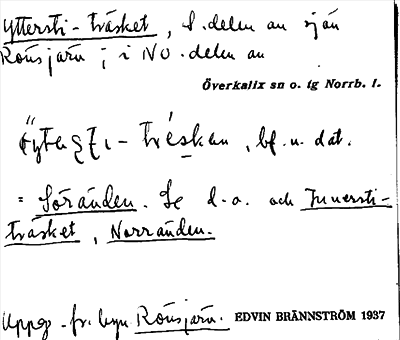 Yttersti-träsket, S. delen av sjön
Rönsjärv; i NO. delen av
Överkalix sn o. tg Norrb. l.
-tréskan, bf. n. dat.
= Söränden. Se d.o. och Innersti-
träsket, Norränden.
Uppg. fr. byn Rönsjärv. EDVIN BRÄNNSTRÖM 1937